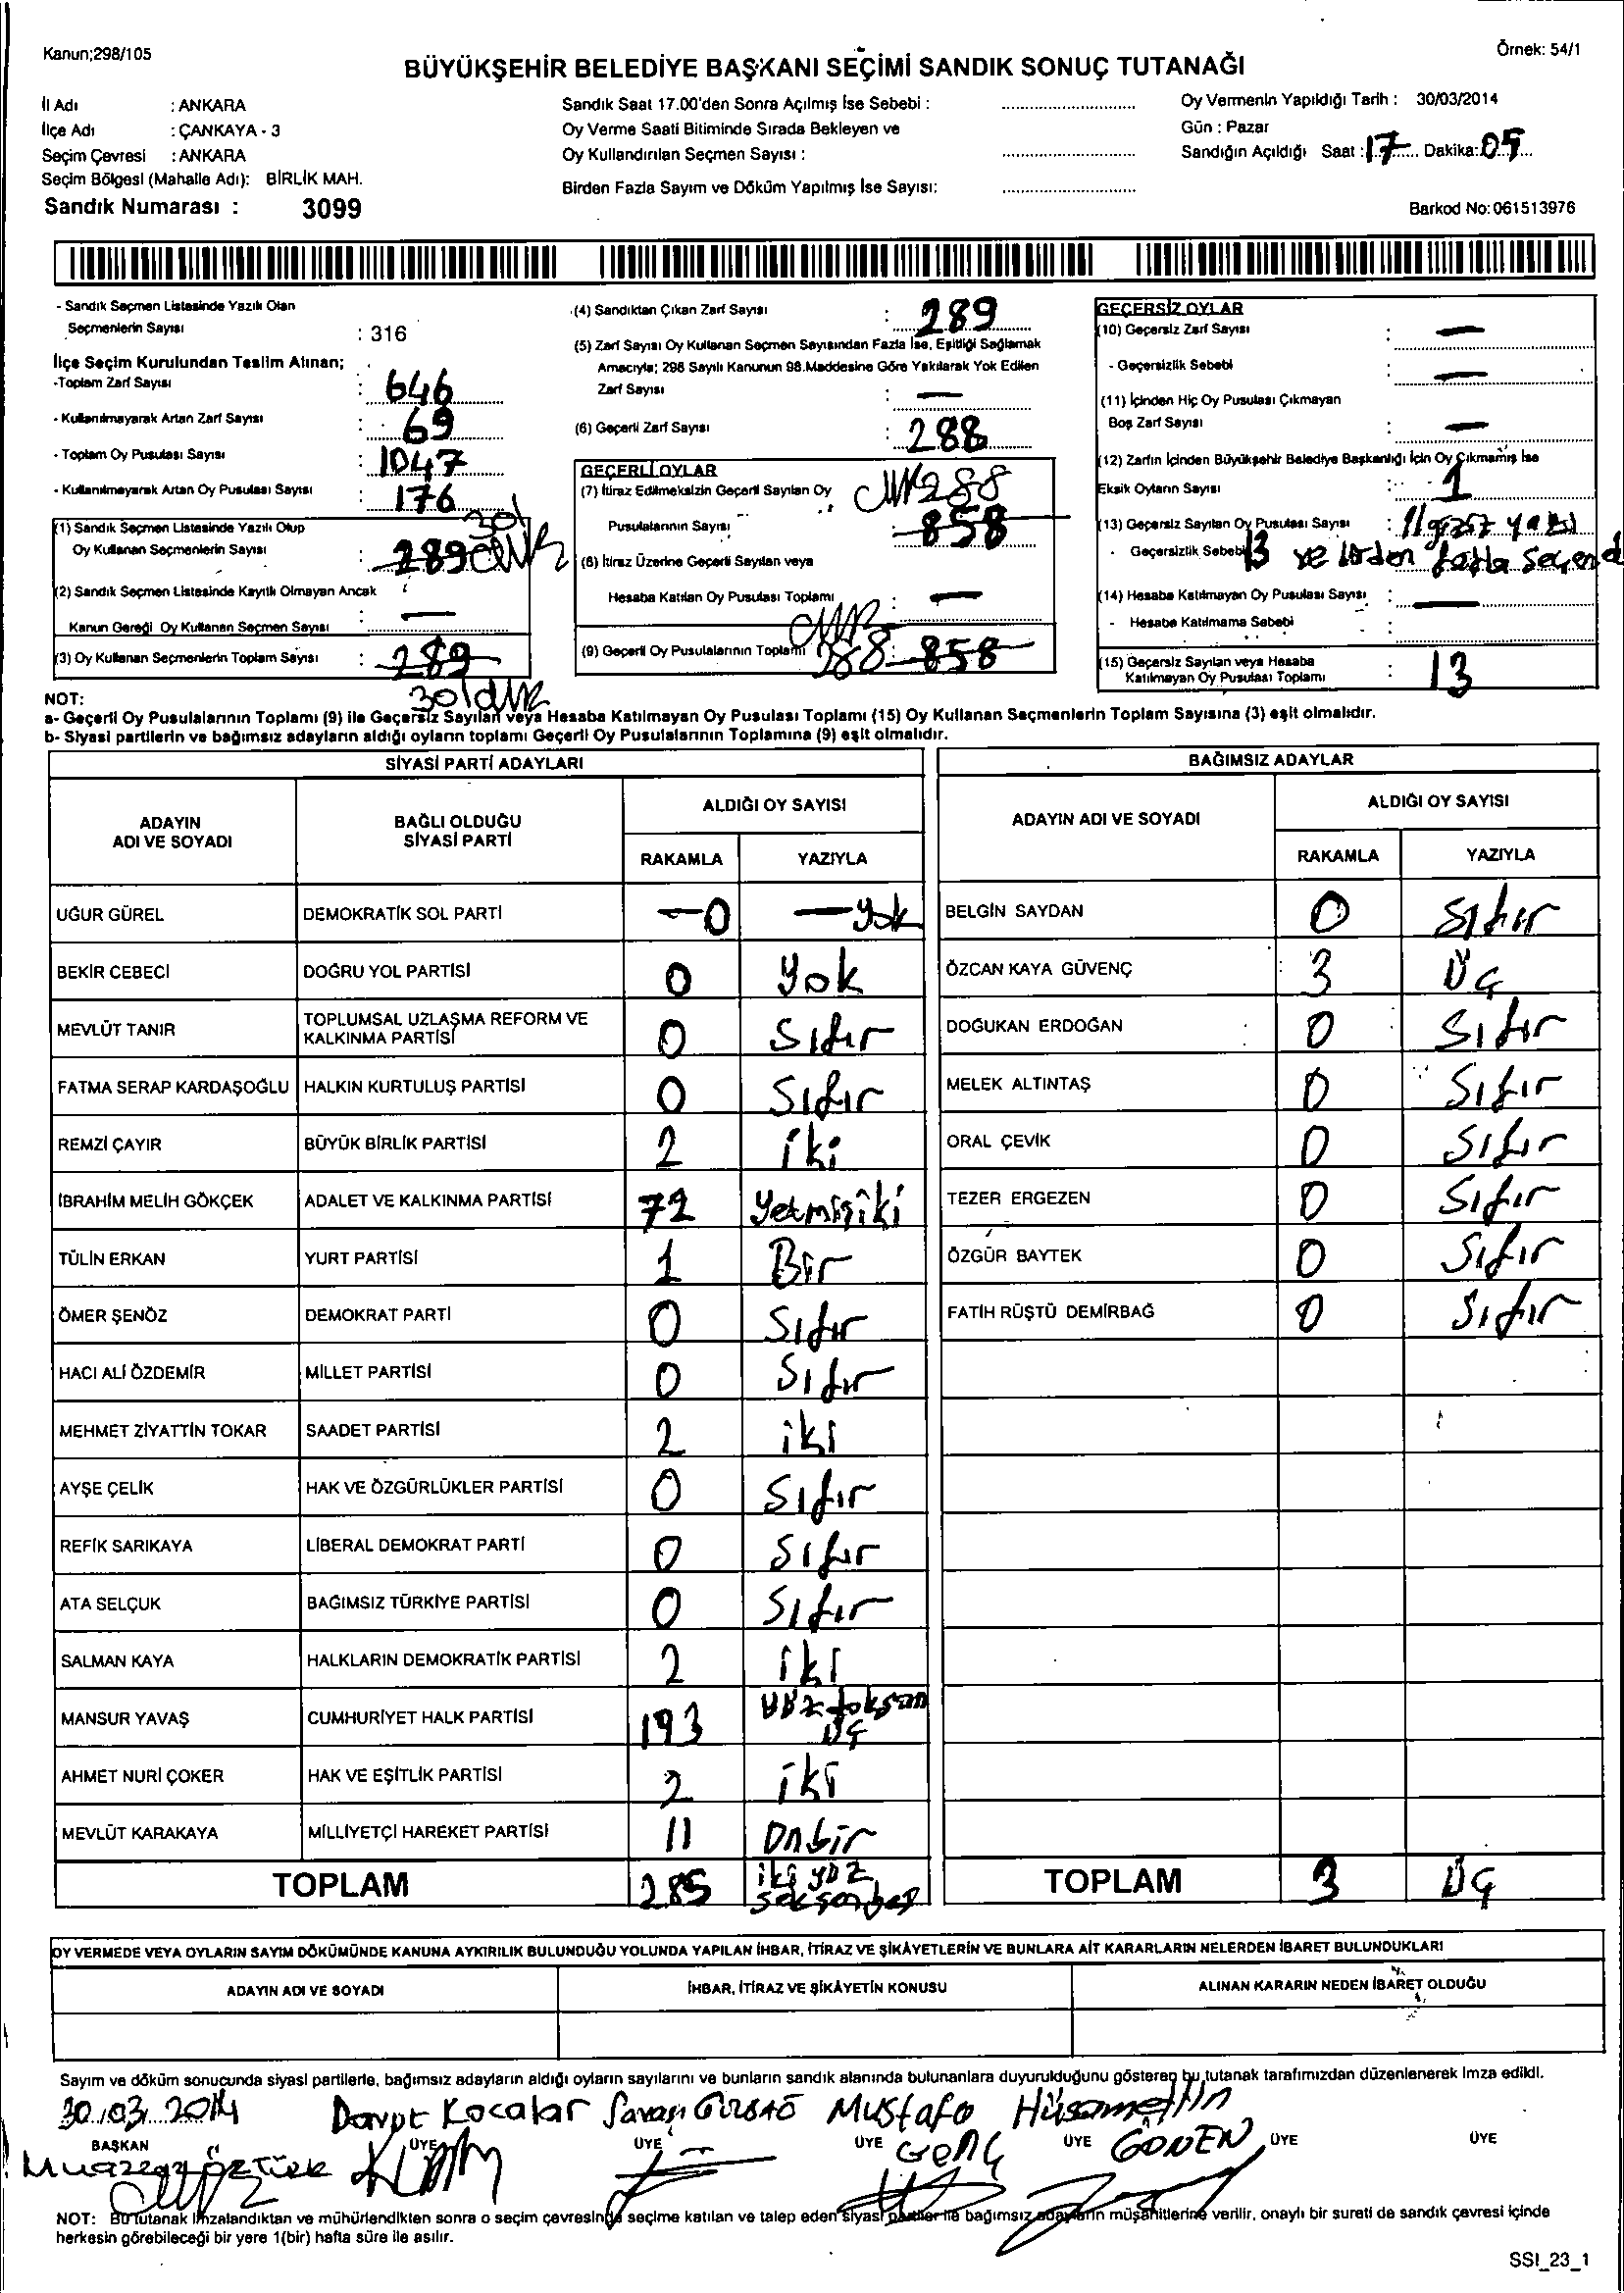 Kanun;298/105
Örnek: 54/1
BÜYÜKŞEHİR BELEDİYE BAŞKANI SEÇİMİ SANDIK SONUÇ TUTANAĞI
İl Adı : ANKARA
İlçe Adı : ÇANKAYA - 3
Seçim Çevresi : ANKARA
Seçim Bölgesi (Mahalle Adı): BİRLİK MAH.
Sandık Numarası : 3099
Sandık Saat 17.00'den Sonra Açılmış İse Sebebi :
Oy Verme Saati Bitiminde Sırada Bekleyen ve
Oy Kullandırılan Seçmen Sayısı :
Birden Fazla Sayım ve Döküm Yapılmış İse Sayısı:
Oy Vermenin Yapıldığı Tarih : 30/03/2014
Gün : Pazar
Sandığın Açıldığı Saat : 17 Dakika: 05
Barkod No: 061513976
- Sandık Seçmen Listesinde Yazılı Olan
Seçmenlerin Sayısı : 316
İlçe Seçim Kurulundan Teslim Alınan;
-Toplam Zarf Sayısı : 646
- Kullanılmayarak Artan Zarf Sayısı : 69
- Toplam Oy Pusulası Sayısı : 1047
- Kullanılmayarak Artan Oy Pusulası Sayısı : 176
(1) Sandık Seçmen Listesinde Yazılı Olup
Oy Kullanan Seçmenlerin Sayısı : 289 301
(2) Sandık Seçmen Listesinde Kayıtlı Olmayan Ancak
Kanun Gereği Oy Kullanan Seçmen Sayısı : —
(3) Oy Kullanan Seçmenlerin Toplam Sayısı : 289
301
(4) Sandıktan Çıkan Zarf Sayısı : 289
(5) Zarf Sayısı Oy Kullanan Seçmen Sayısından Fazla İse, Eşitliği Sağlamak
Amacıyla; 298 Sayılı Kanunun 98.Maddesine Göre Yakılarak Yok Edilen
Zarf Sayısı : —
(6) Geçerli Zarf Sayısı : 288
GEÇERLİ OYLAR
(7) İtiraz Edilmeksizin Geçerli Sayılan Oy 288
Pusulalarının Sayısı 858
(8) İtiraz Üzerine Geçerli Sayılan veya
Hesaba Katılan Oy Pusulası Toplamı : —
(9) Geçerli Oy Pusulalarının Toplamı 288 858
GEÇERSİZ OYLAR
(10) Geçersiz Zarf Sayısı : —
- Geçersizlik Sebebi : —
(11) İçinden Hiç Oy Pusulası Çıkmayan
Boş Zarf Sayısı : —
(12) Zarfın İçinden Büyükşehir Belediye Başkanlığı İçin Oy Çıkmamış İse
Eksik Oyların Sayısı : 1
(13) Geçersiz Sayılan Oy Pusulası Sayısı :
- Geçersizlik Sebebi 13 ve birden fazla
(14) Hesaba Katılmayan Oy Pusulası Sayısı : —
- Hesaba Katılmama Sebebi :
(15) Geçersiz Sayılan veya Hesaba
Katılmayan Oy Pusulası Toplamı : 13
NOT:
a- Geçerli Oy Pusulalarının Toplamı (9) ile Geçersiz Sayılan veya Hesaba Katılmayan Oy Pusulası Toplamı (15) Oy Kullanan Seçmenlerin Toplam Sayısına (3) eşit olmalıdır.
b- Siyasi partilerin ve bağımsız adayların aldığı oyların toplamı Geçerli Oy Pusulalarının Toplamına (9) eşit olmalıdır.
SİYASİ PARTİ ADAYLARI
ADAYIN ADI VE SOYADI BAĞLI OLDUĞU SİYASİ PARTİ ALDIĞI OY SAYISI
RAKAMLA YAZIYLA
UĞUR GÜREL DEMOKRATİK SOL PARTİ —0 —yok
BEKİR CEBECİ DOĞRU YOL PARTİSİ 0 yok
MEVLÜT TANIR TOPLUMSAL UZLAŞMA REFORM VE KALKINMA PARTİSİ 0 Sıfır
FATMA SERAP KARDAŞOĞLU HALKIN KURTULUŞ PARTİSİ 0 Sıfır
REMZİ ÇAYIR BÜYÜK BİRLİK PARTİSİ 2 iki
İBRAHİM MELİH GÖKÇEK ADALET VE KALKINMA PARTİSİ 72 Yetmişiki
TÜLİN ERKAN YURT PARTİSİ 1 Bir
ÖMER ŞENÖZ DEMOKRAT PARTİ 0 Sıfır
HACI ALİ ÖZDEMİR MİLLET PARTİSİ 0 Sıfır
MEHMET ZİYATTİN TOKAR SAADET PARTİSİ 2 iki
AYŞE ÇELİK HAK VE ÖZGÜRLÜKLER PARTİSİ 0 Sıfır
REFİK SARIKAYA LİBERAL DEMOKRAT PARTİ 0 Sıfır
ATA SELÇUK BAĞIMSIZ TÜRKİYE PARTİSİ 0 Sıfır
SALMAN KAYA HALKLARIN DEMOKRATİK PARTİSİ 2 iki
MANSUR YAVAŞ CUMHURİYET HALK PARTİSİ 193 yüz doksan üç
AHMET NURİ ÇOKER HAK VE EŞİTLİK PARTİSİ 2 iki
MEVLÜT KARAKAYA MİLLİYETÇİ HAREKET PARTİSİ 11 Onbir
TOPLAM 285 iki yüz seksen beş
BAĞIMSIZ ADAYLAR
ADAYIN ADI VE SOYADI ALDIĞI OY SAYISI
RAKAMLA YAZIYLA
BELGİN SAYDAN 0 Sıfır
ÖZCAN KAYA GÜVENÇ 3 Üç
DOĞUKAN ERDOĞAN 0 Sıfır
MELEK ALTINTAŞ 0 Sıfır
ORAL ÇEVİK 0 Sıfır
TEZER ERGEZEN 0 Sıfır
ÖZGÜR BAYTEK 0 Sıfır
FATİH RÜŞTÜ DEMİRBAĞ 0 Sıfır
TOPLAM 3 Üç
OY VERMEDE VEYA OYLARIN SAYIM DÖKÜMÜNDE KANUNA AYKIRILIK BULUNDUĞU YOLUNDA YAPILAN İHBAR, İTİRAZ VE ŞİKÂYETLERİN VE BUNLARA AİT KARARLARIN NELERDEN İBARET BULUNDUKLARI
ADAYIN ADI VE SOYADI İHBAR, İTİRAZ VE ŞİKÂYETİN KONUSU ALINAN KARARIN NEDEN İBARET OLDUĞU
Sayım ve döküm sonucunda siyasi partilerle, bağımsız adayların aldığı oyların sayılarını ve bunların sandık alanında bulunanlara duyurulduğunu gösteren bu tutanak tarafımızdan düzenlenerek imza edildi.
30.03.2014 Davut Kocalar Savaş Mustafa Hüsamettin
BAŞKAN ÜYE ÜYE ÜYE GENÇ ÜYE GÖNEN ÜYE ÜYE
Muazzez ÖZTÜRK
NOT: Bu tutanak imzalandıktan ve mühürlendikten sonra o seçim çevresinde seçime katılan ve talep eden siyasi partiler ile bağımsız adayların müşahitlerine verilir, onaylı bir sureti de sandık çevresi içinde
herkesin görebileceği bir yere 1(bir) hafta süre ile asılır.
SSI_23_1